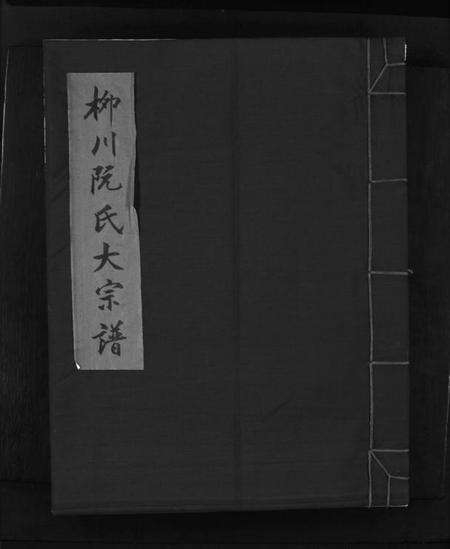 柳川阮氏大宗譜